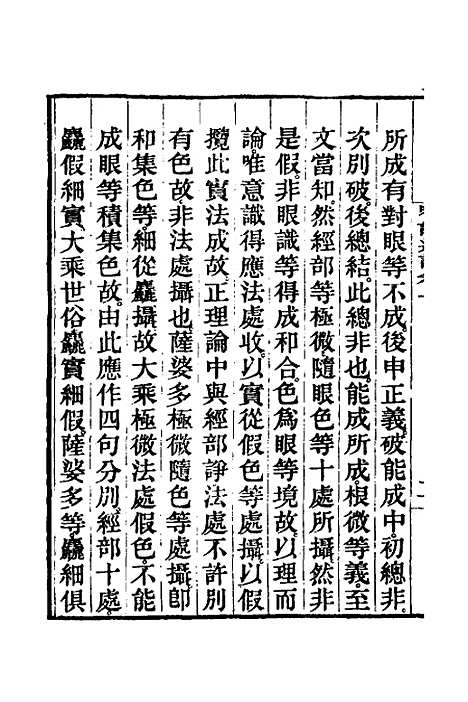 所成有對眼等不成。後申正義。破能成中。初總非。
次別破。後總結。此總非也。能成所成。根微等義。至
文當知。然經部等極微。隨眼色等十處所攝。然非
是假。非眼識等得成和合。色爲眼等境故。以理而
論。唯意識得應法處收。以實從假色等處攝。以假
攬此實法成故。正理論中與經部諍法處不許別
有色故。非法處攝也。薩婆多極微隨色等處攝。卽
和集色等。細從麤攝故。大乘極微法處假色。不能
成眼等積集色故。由此應作四句分別。經部十處。
麤假細實。大乘世俗麤實細假。薩婆多等。麤細俱